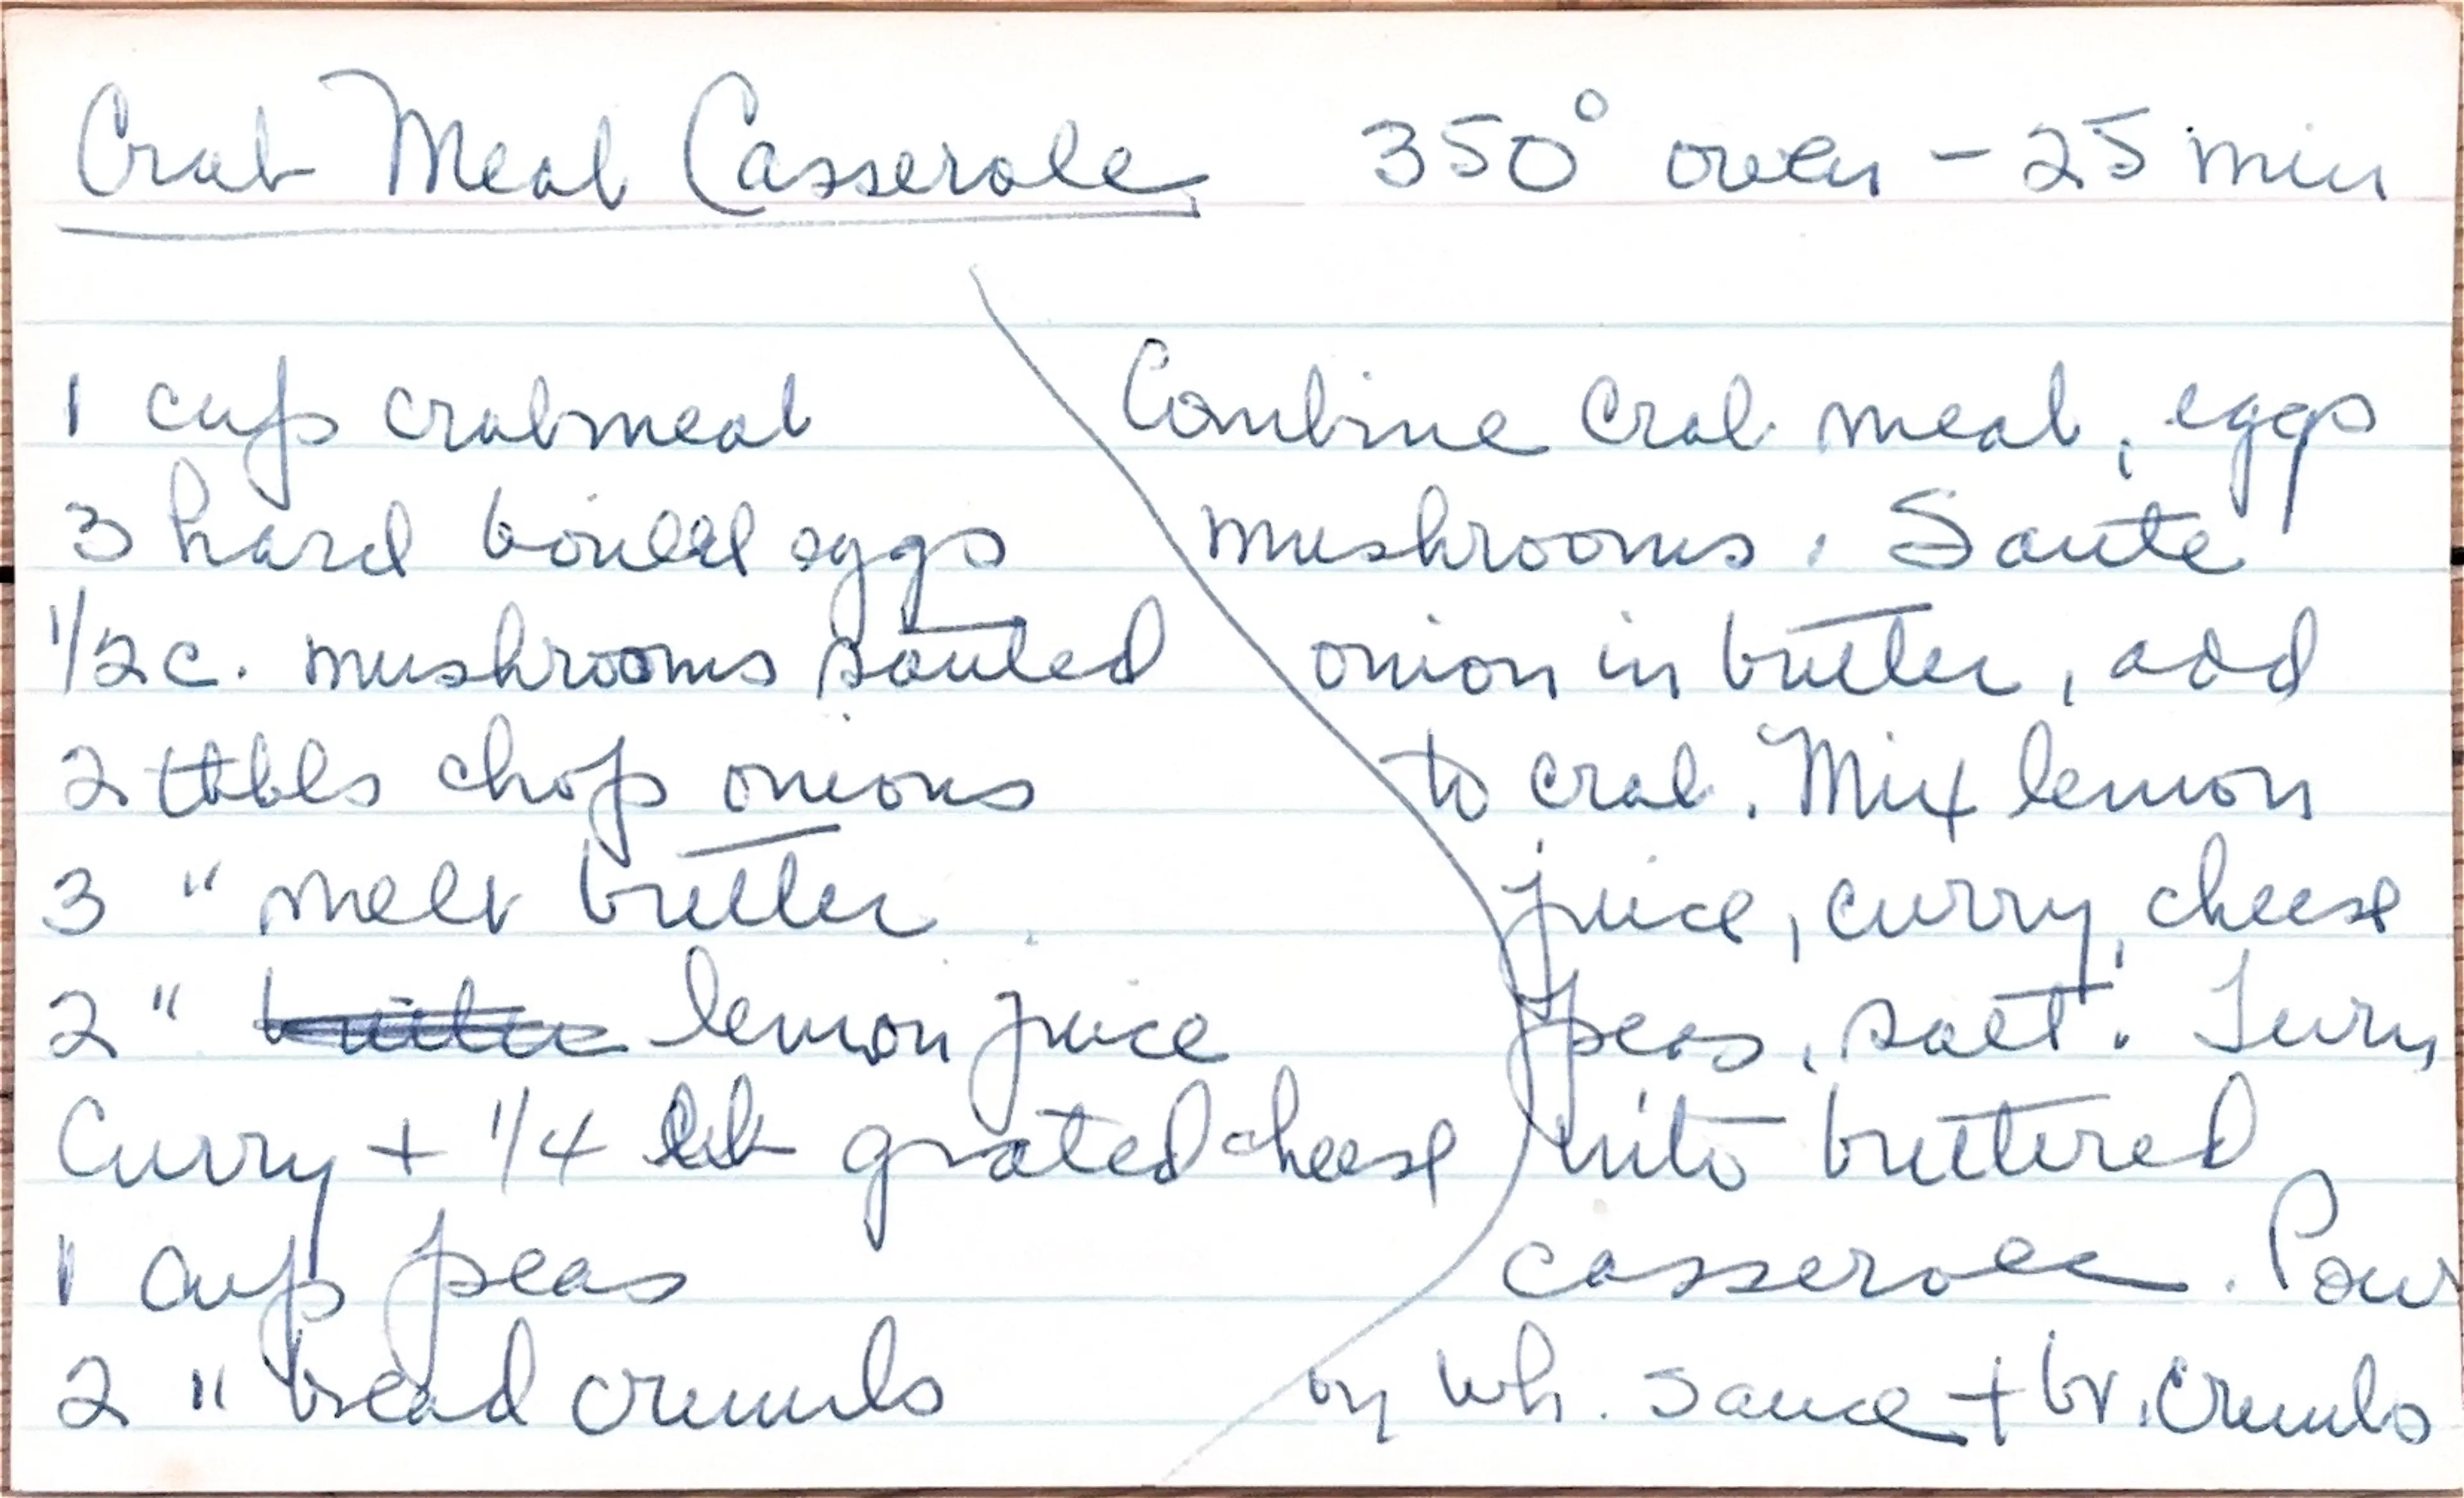 Crab Meat Casserole 350° oven - 25 min
1 cup crabmeat
3 hard boiled eggs
1/2 c. mushrooms sauted
2 tbls chop onions
3 " melt butter
2 " lemon juice
Curry + 1/4 grated cheese
1 cup peas
2 " bread crumbs
Combine crab meat, eggs
mushrooms. Saute
onion in butter, add
to crab. Mix lemon
juice, curry, cheese
peas, salt. Turn
into buttered
casserole. Pour
on wh. sauce + br. crumbs